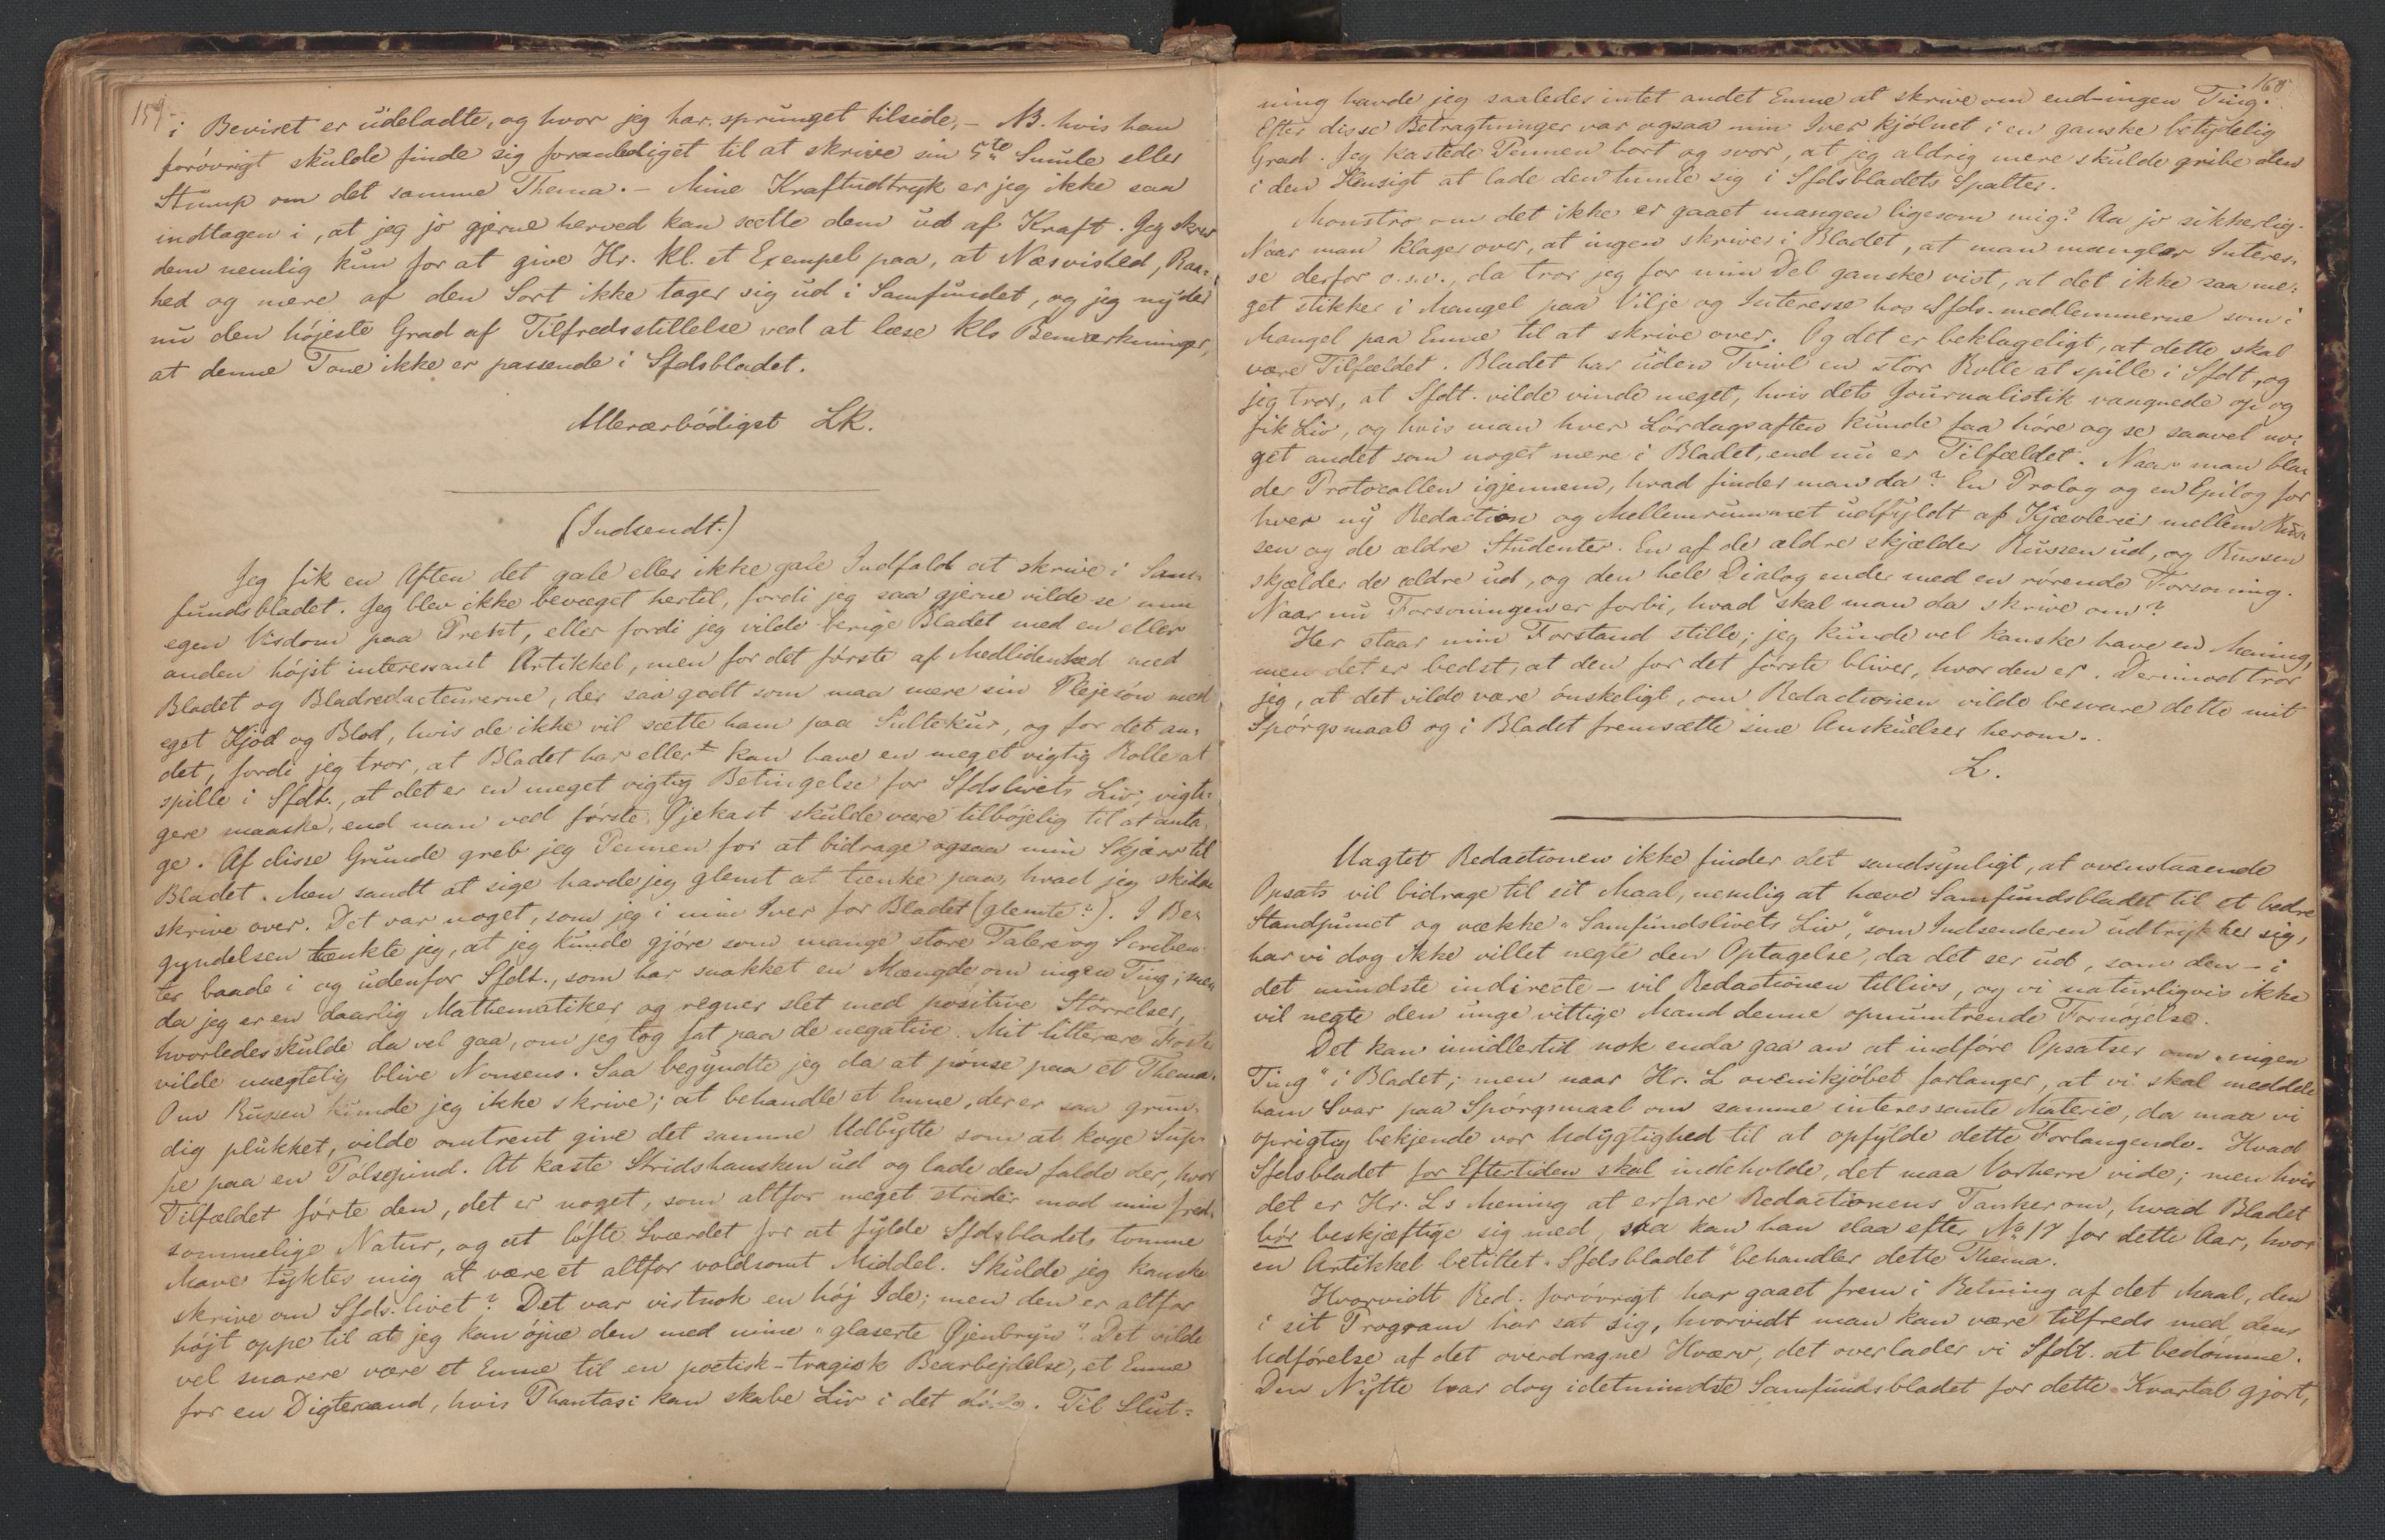 159.
i Beviset er udeladte, og hvor jeg har sprunget tilside, – NB. hvis han
forövrigt skulde finde sig foranlediget til at skrive sin 5te Smule eller
Stump om det samme Thema. – Mine Kraftudtryk er jeg ikke saa
indtagen i, at jeg jo gjerne herved kan sætte dem ud af Kraft. Jeg skrev
dem nemlig kun for at give Hr. Kl. et Exempel paa, at Næsvished, Raa-
hed og mere af den Sort ikke tager sig ud i Samfundet, og jeg nyder
nu den höjeste Grad af Tilfredsstillelse ved at læse Kls Bemærkninger,
at denne Tone ikke er passende i Sfdsbladet.
Allerærbödigst LK.
(Indsendt.)
Jeg fik en Aften det gale eller ikke gale Indfald at skrive i Sam-
fundsbladet. Jeg blev ikke bevæget hertil, fordi jeg saa gjerne vilde se min
egen Visdom paa Prent, eller fordi jeg vilde berige Bladet med en eller
anden höjst interessant Artikkel, men for det förste af Medlidenhed med
Bladet og Bladredacteurerne, der saa godt som maa nære sin Plejesön med
eget Kjöd og Blod, hvis de ikke vil sætte ham paa Sultekur, og for det an-
det, fordi jeg tror, at Bladet har eller kan have en meget vigtig Rolle at
spille i Sfdt., at det er en meget vigtig Betingelse for Sfdslivets Liv; vigti-
gere maaske, end man ved förste Øjekast skulde være tilböjelig til at anta-
ge. Af disse Grunde greb jeg Pennen for at bidrage ogsaa min Skjærv til
Bladet. Men sandt at sige havde jeg glemt at tænke paa, hvad jeg skulde
skrive over. Det var noget, som jeg i min Iver for Bladet (glemte?). I Be-
gyndelsen tænkte jeg, at jeg kunde gjöre som mange store Talere og Scriben-
ter baade i og udenfor Sfdt., som har snakket en Mængde om ingen Ting; men
da jeg er en daarlig Mathematiker og regner slet med positive Störrelser,
hvorledes skulde da vel gaa, om jeg tog fat paa de negative. Mit litterære Foster
vilde unegtelig blive Nonsens. Saa begyndte jeg da at pönse paa et Thema.
Om Russen kunde jeg ikke skrive; at behandle et Emne, der er saa grun-
dig plukket, vilde omtrent give det samme Udbytte som at koge Sup-
pe paa en Pölsepind. At kaste Stridshansken ud og lade den falde der, hvor
Tilfældet förte den, det er noget, som altfor meget strider mod min fred-
sommelige Natur, og at löfte Sværdet for at fylde Sfdsbladets tomme
Mave tyktes mig at være et altfor voldsomt Middel. Skulde jeg kanske
skrive om Sfds.livet? Det var vistnok en höj Ide; men den er altfor
höjt oppe til at jeg kan öjne den med mine "glaserte Øjenbryn". Det vilde
vel snarere være et Emne til en poetisk-tragisk Bearbejdelse, et Emne
for en Digteraand, hvis Phantasi kan skabe Liv i det döde. Til Slut-
160
ning havde jeg saaledes intet andet Emne at skrive om end – ingen Ting.
Efter disse Betragtninger var ogsaa min Iver kjölnet i en ganske betydelig
Grad. Jeg kastede Pennen bort og svor, at jeg aldrig mere skulde gribe den
i den Hensigt at lade den tumle sig i Sfdsbladets Spalter.
Monstro om det ikke er gaaet mangen ligesom mig? Aa jo sikkerlig.
Naar man klager over, at ingen skriver i Bladet, at man mangler Interes-
se derfor o.s.v., da tror jeg for min Del ganske vist, at det ikke saa me-
get stikker i Mangel paa Vilje og Interesse hos Sfds.-medlemmerne som i
Mangel paa Emne til at skrive over. Og det er beklageligt, at dette skal
være Tilfældet. Bladet har uden Tvivl en stor Rolle at spille i Sfdt, og
jeg tror, at Sfdt. vilde vinde meget, hvis dets Journalistik vaagnede op og
fik Liv, og hvis man hver Lördagsaften kunde faa höre og se saavel no-
get andet som noget mere i Bladet, end nu er Tilfældet. Naar man bla-
der Protocollen igjennem, hvad finder man da? En Prolog og en Epilog for
hver ny Redaction og Mellemrummet udfyldt af Kjævlerier mellem Rus-
sen og de ældre Studenter. En af de ældre skjælder Russen ud, og Russen
skjælder de ældre ud, og den hele Dialog ender med en rörende Forsoning.
Naar nu Forsoningen er forbi, hvad skal man da skrive om?
Her staar min Forstand stille; jeg kunde vel kanske have en Mening,
men det er bedst, at den for det förste bliver, hvor den er. Derimod tror
jeg, at det vilde være önskeligt, om Redactionen vilde besvare dette mit
Spörgsmaal og i Bladet fremsætte sine Anskuelser herom.
L.
Uagtet Redactionen ikke finder det sandsynligt, at ovenstaaende
Opsats vil bidrage til sit Maal, nemlig at hæve Samfundsbladet til et bedre
Standpunct og vække "Samfundslivets Liv", som Indsenderen udtrykker sig,
har vi dog ikke villet negte den Optagelse, da det ser ud, som den – i
det mindste indirecte – vil Redactionen tillivs, og vi naturligvis ikke
vil negte den unge vittige Mand denne opmuntrende Fornöjelse.
Det kan imidlertid nok enda gaa an at indföre Opsatser om "ingen
Ting" i Bladet; men naar Hr. L ovenikjöbet forlanger, at vi skal meddele
ham Svar paa Spörgsmaal om samme interessante Materie, da maa vi
oprigtig bekjende vor Udygtighed til at opfylde dette Forlangende. Hvad
Sfdsbladet for Eftertiden skal indeholde, det maa Vorherre vide; men hvis
det er Hr. Ls Mening at erfare Redactionens Tanker om, hvad Bladet
bör beskjæftige sig med, saa kan han slaa efter No 17 for dette Aar, hvor
en Artikkel betittet "Sfdsbladet" behandler dette Thema.
Hvorvidt Red. forövrigt har gaaet frem i Retning af det Maal, den
i sit Program har sat sig, hvorvidt man kan være tilfreds med dens
Udförelse af det overdragne Hverv, det overlader vi Sfdt. at bedömme.
Den Nytte har dog idetmindste Samfundsbladet for dette Kvartal gjort,